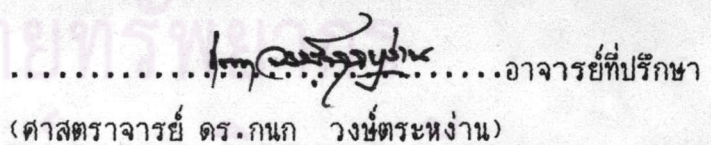 ............................อาจารย์ที่ปรึกษา
(ศาสตราจารย์ ดร.กนก วงษ์ตระหง่าน)